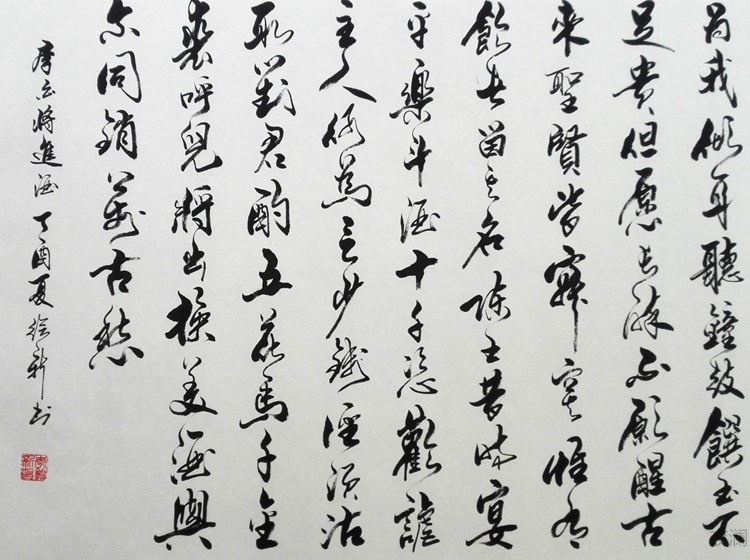 为我傾耳聽鐘鼓饌玉不
足貴但愿長醉不願醒古
來聖賢皆寂寞惟有
飲者留其名陳王昔時宴
平樂斗酒十千恣歡謔
主人何為言少錢徑須沽
取對君酌五花馬千金
裘呼兒將出換美酒與
尔同銷萬古愁
李白將進酒 丁酉夏徐新书